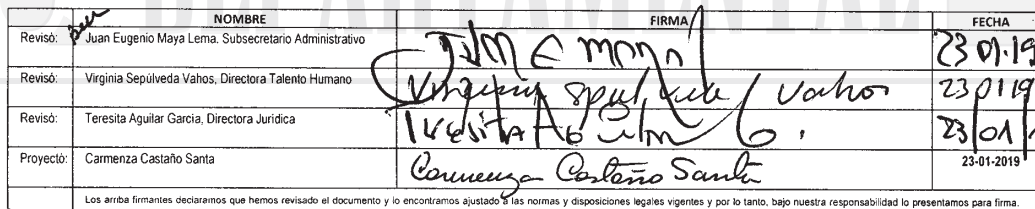 NOMBRE FIRMA FECHA
Revisó: Juan Eugenio Maya Lema. Subsecretario Administrativo 23 01·19
Revisó: Virginia Sepúlveda Vahos, Directora Talento Humano Virginia Sepulveda Vahos 23 01 19
Revisó: Teresita Aguilar Garcia, Directora Jurídica Teresita Aguilar G. 23/01/1
Proyectó: Carmenza Castaño Santa Carmenza Castaño Santa 23-01-2019
Los arriba firmantes declaramos que hemos revisado el documento y lo encontramos ajustado a las normas y disposiciones legales vigentes y por lo tanto, bajo nuestra responsabilidad lo presentamos para firma.